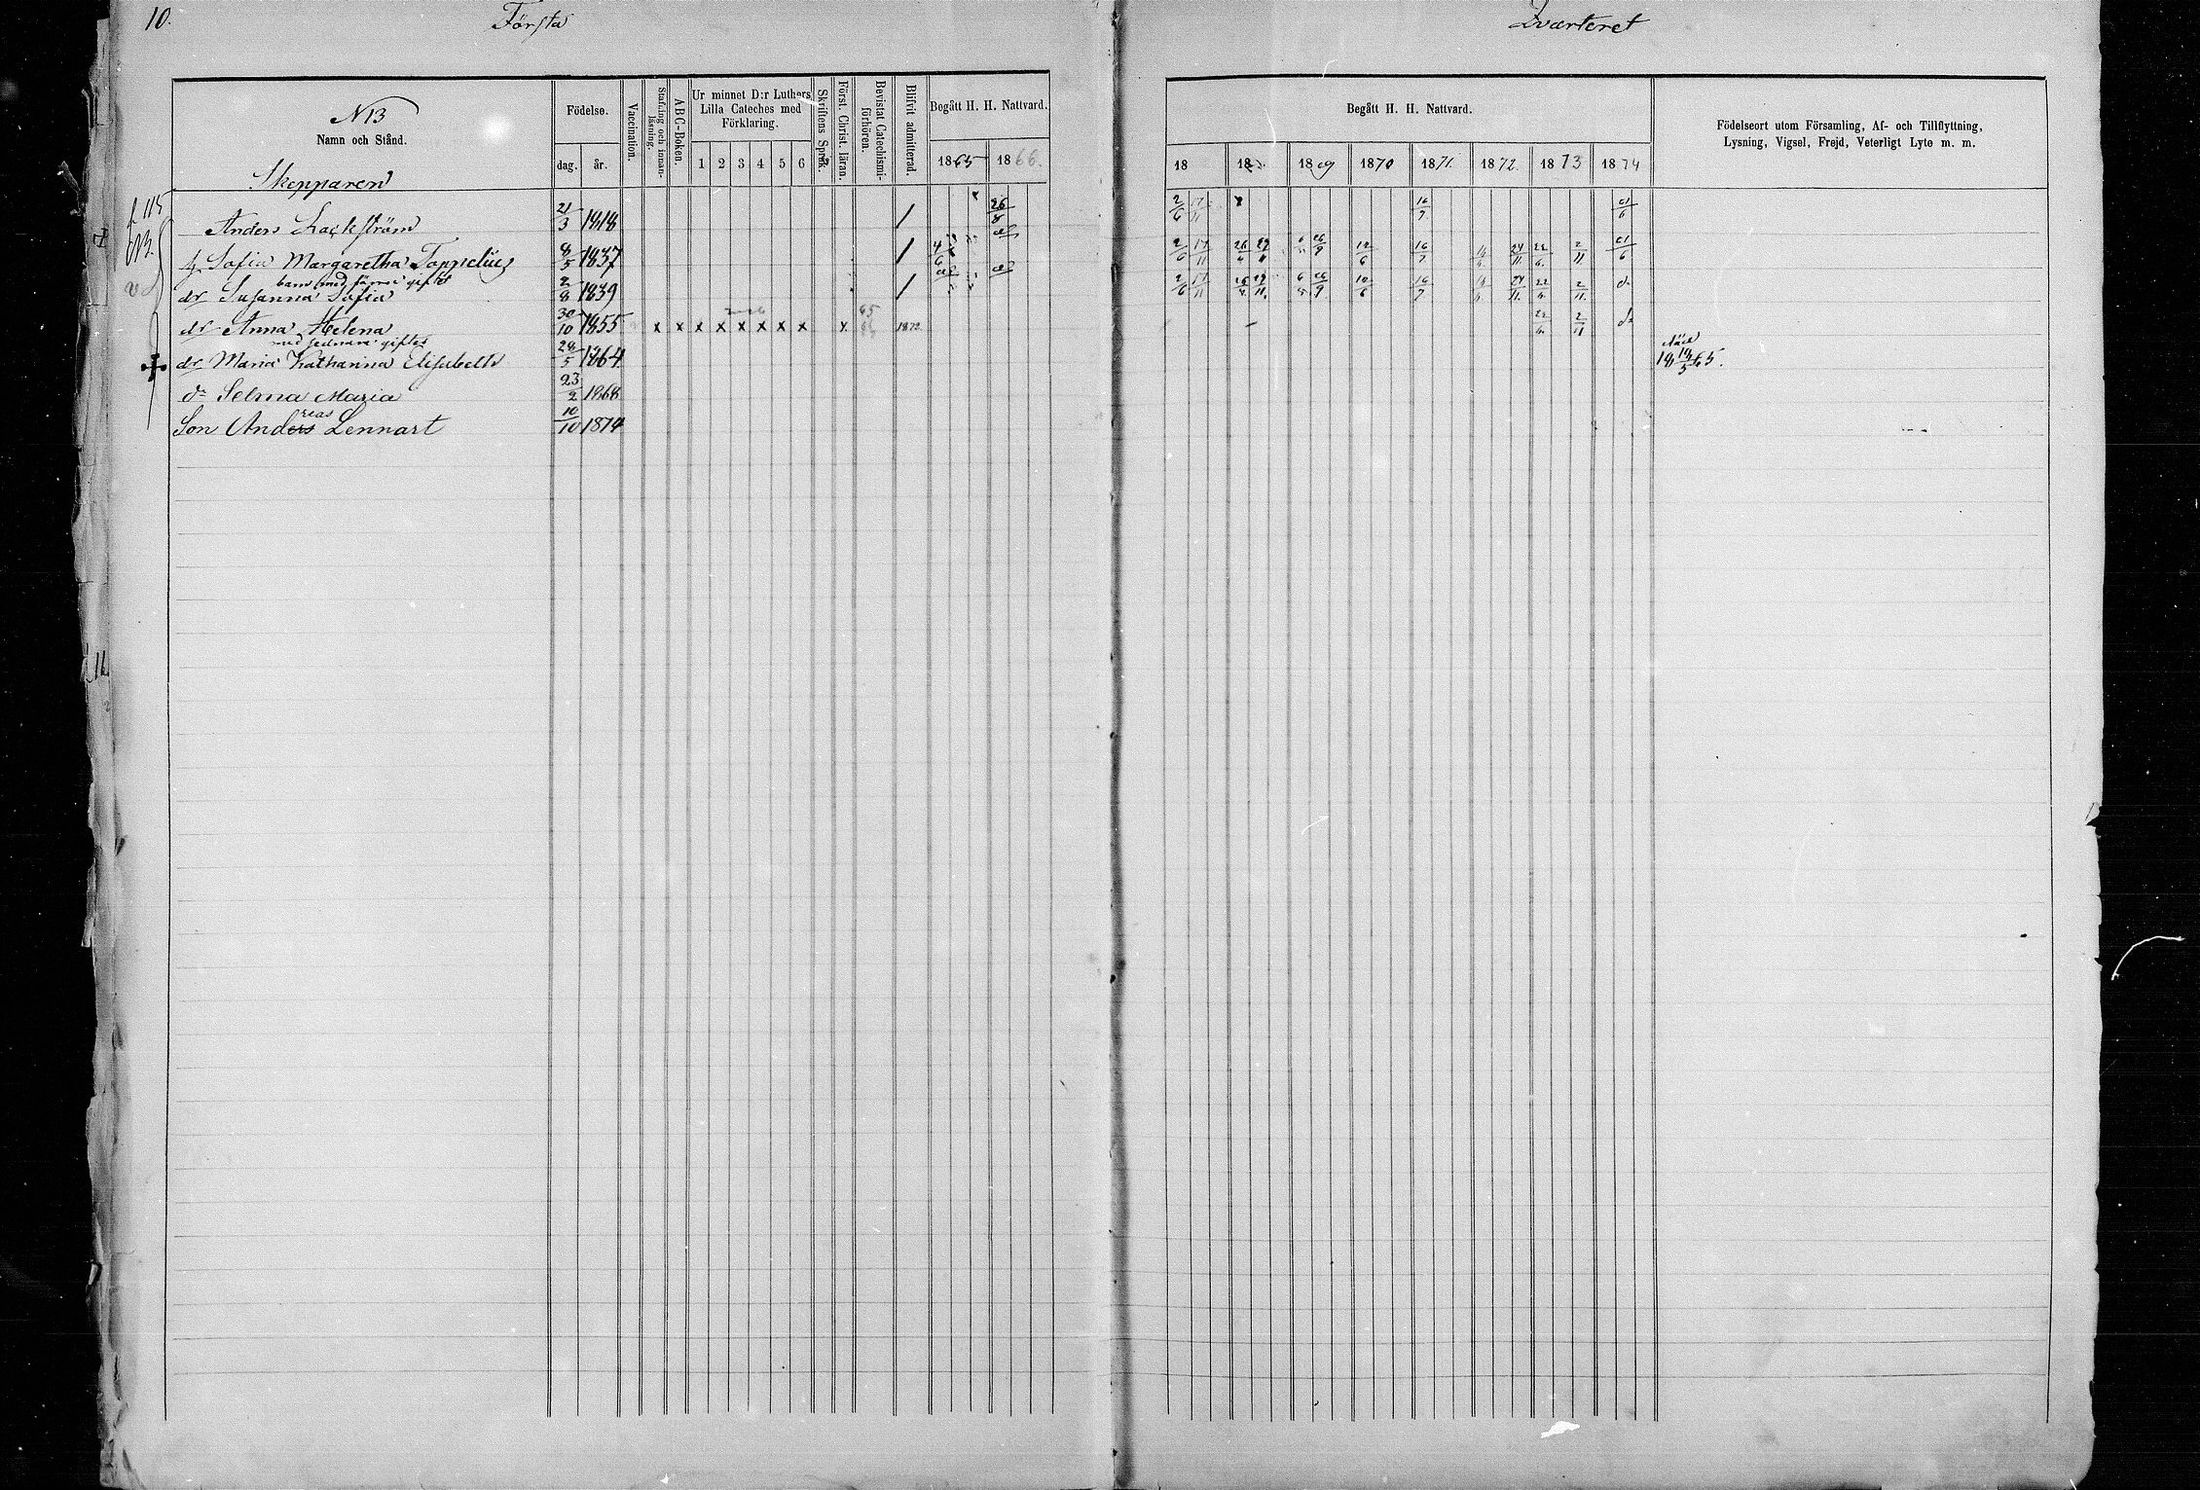 10.
Första
Qvarteret
N 13
Namn och Stånd.
Födelse.
dag.
år.
Vaccination.
Stafning och innan-läsning.
ABC-Boken.
Ur minnet D:r Luthers Lilla Cateches med Förklaring.
1 2 3 4 5 6
Skriftens Språk.
Först. Christ. läran.
Bevistat Catechismi-förhören.
Blifvit admitterad.
Begått H. H. Nattvard.
1865 1866.
Begått H. H. Nattvard.
18 18 1869 1870 1871. 1872. 1873 1874
Födelseort utom Församling, Af- och Tillflyttning,
Lysning, Vigsel, Frejd, Veterligt Lyte m. m.
Skepparen
115
Anders Lackström 21/3 1818 / 26/8 2/6 17/11 x 16/7
h. Sofia Margaretha Toppelius 8/5 1837 / 4/6 2/6 17/11 26/9 12/6 16/7 24/11 22/6 2/11
barn med förra giftet
dr Susanna Sofia 2/8 1839 / 2/6 17/11 26/9 10/6 16/7 24/11 22/6 2/11 do
dr Anna Helena 30/10 1855 x x x x x x x x x 65 1872 22/6 2/11 do
med sednare giftet
dr Maria Katharina Elisabeth 28/5 1864 död 18 18/5 65.
do Selma Maria 23/2 1868
Son Anders reas Lennart 10/10 1874
16